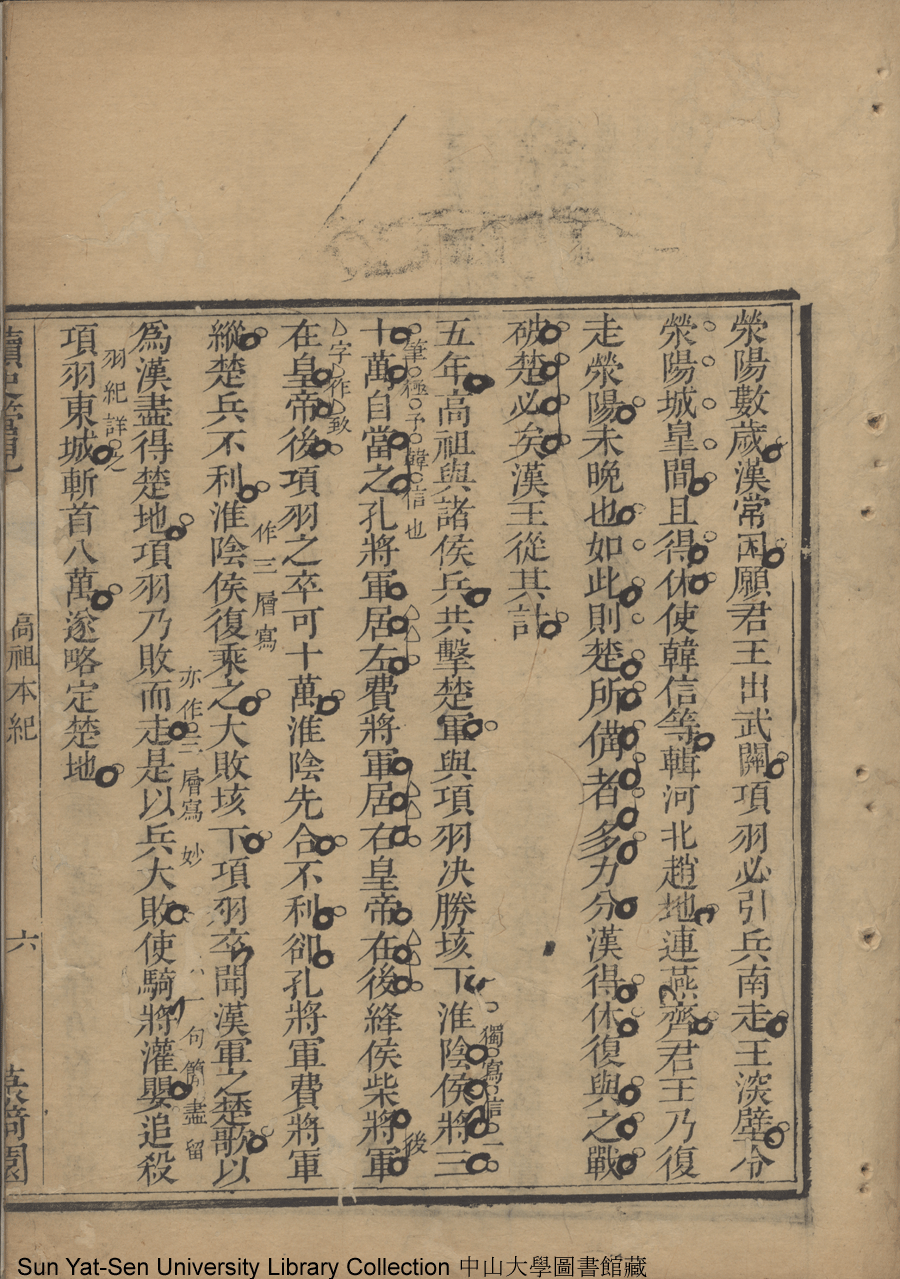 滎陽數歲漢常困願君王出武關項羽必引兵南走王深壁令
滎陽城皐間且得休使韓信等輯河北趙地連燕齊君王乃復
走滎陽未晚也如此則楚所備者多力分漢得休復與之戰
破楚必矣漢王從其計
五年高祖與諸侯兵共擊楚軍與項羽决勝垓下淮陰侯將三
獨寫信一
筆極予韓信也
十萬自當之孔將軍居左費將軍居右皇帝在後絳侯柴將軍
後
字作致
在皇帝後項羽之卒可十萬淮陰先合不利卻孔將軍費將軍
縱楚兵不利淮陰侯復乘之大敗垓下項羽卒聞漢軍之楚歌以
作三層寫
爲漢盡得楚地項羽乃敗而走是以兵大敗使騎將灌嬰追殺
亦作三層寫妙
一句簡盡留
羽紀詳之
項羽東城斬首八萬遂略定楚地
高祖本紀
六
Sun Yat-Sen University Library Collection 中山大學圖書館藏